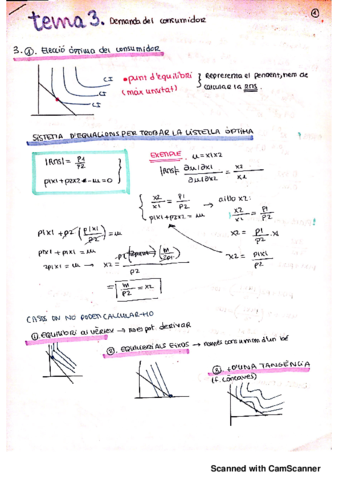 tema 3. Demanda del consumidor
1
3. ①. Elecció òptima del consumidor
CI
CI
CI
• punt d'equilibri
(màx utilitat)
Representa el pendent, hem de
calcular la RMS
SISTEMA D'EQUACIONS PER TROBAR LA CISTELLA ÒPTIMA
|RMS| = P1/P2
P1X1 + P2X2 - M = 0
EXEMPLE. u = X1X2
|RMS| = ∂u/∂X1 / ∂u/∂X2 = X2/X1
X2/X1 = P1/P2
P1X1 + P2X2 = M
→ aïllo X2:
X2/X1 = P1/P2
X2 = P1/P2 · X1
X2 = P1X1/P2
P1X1 + P2 (P1X1/P2) = M
P1X1 + P1X1 = M
2P1X1 = M → X2 =
P2
= M/P2 = X2
CASOS ON NO PODEM CALCULAR-HO
① EQUILIBRI AL VÈRTEX → no es pot derivar
② EQUILIBRI ALS EIXOS → només consumim d'un bé
③ LLUNA TANGÈNCIA
(f. còncaves)
Scanned with CamScanner